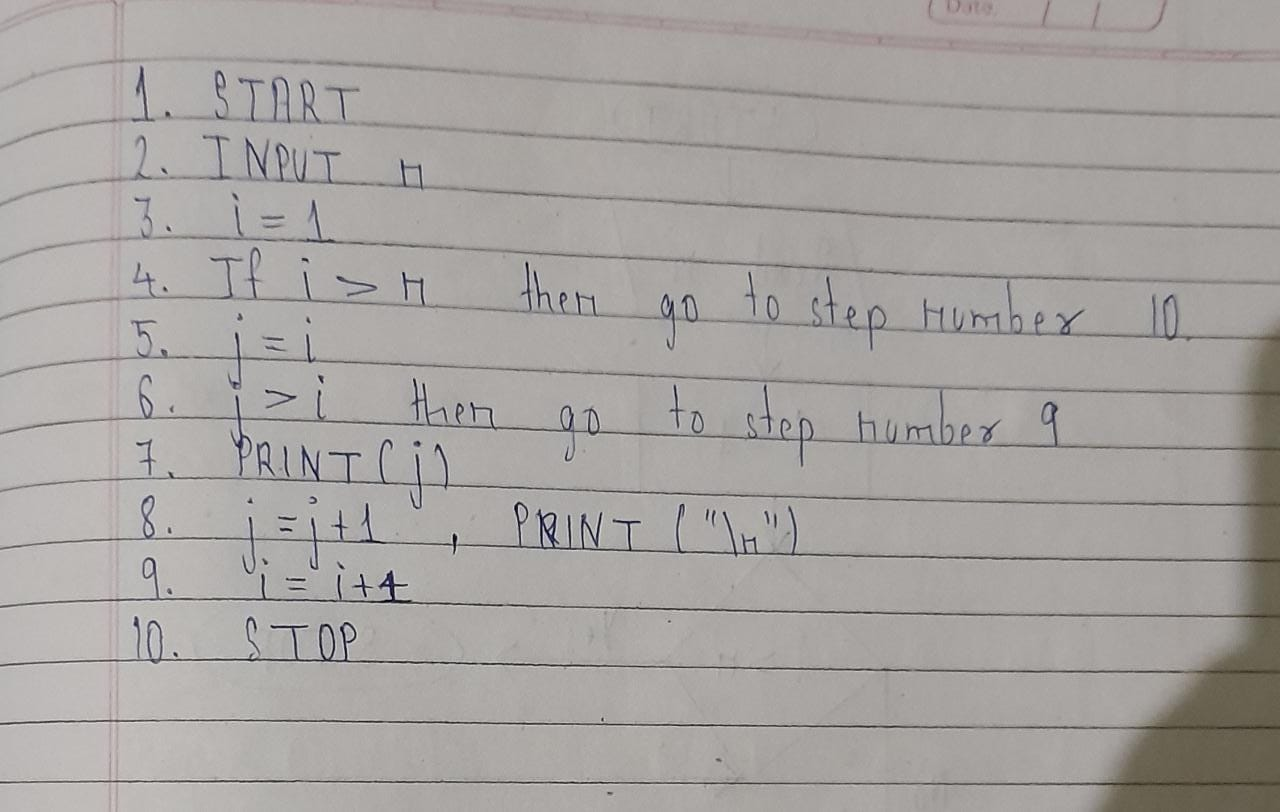 Date
1. START
2. INPUT n
3. i = 1
4. If i > n then go to step number 10.
5. j = i
6. j > i then go to step number 9
7. PRINT (j)
8. j = j + 1 , PRINT ("\n")
9. i = i + 1
10. STOP